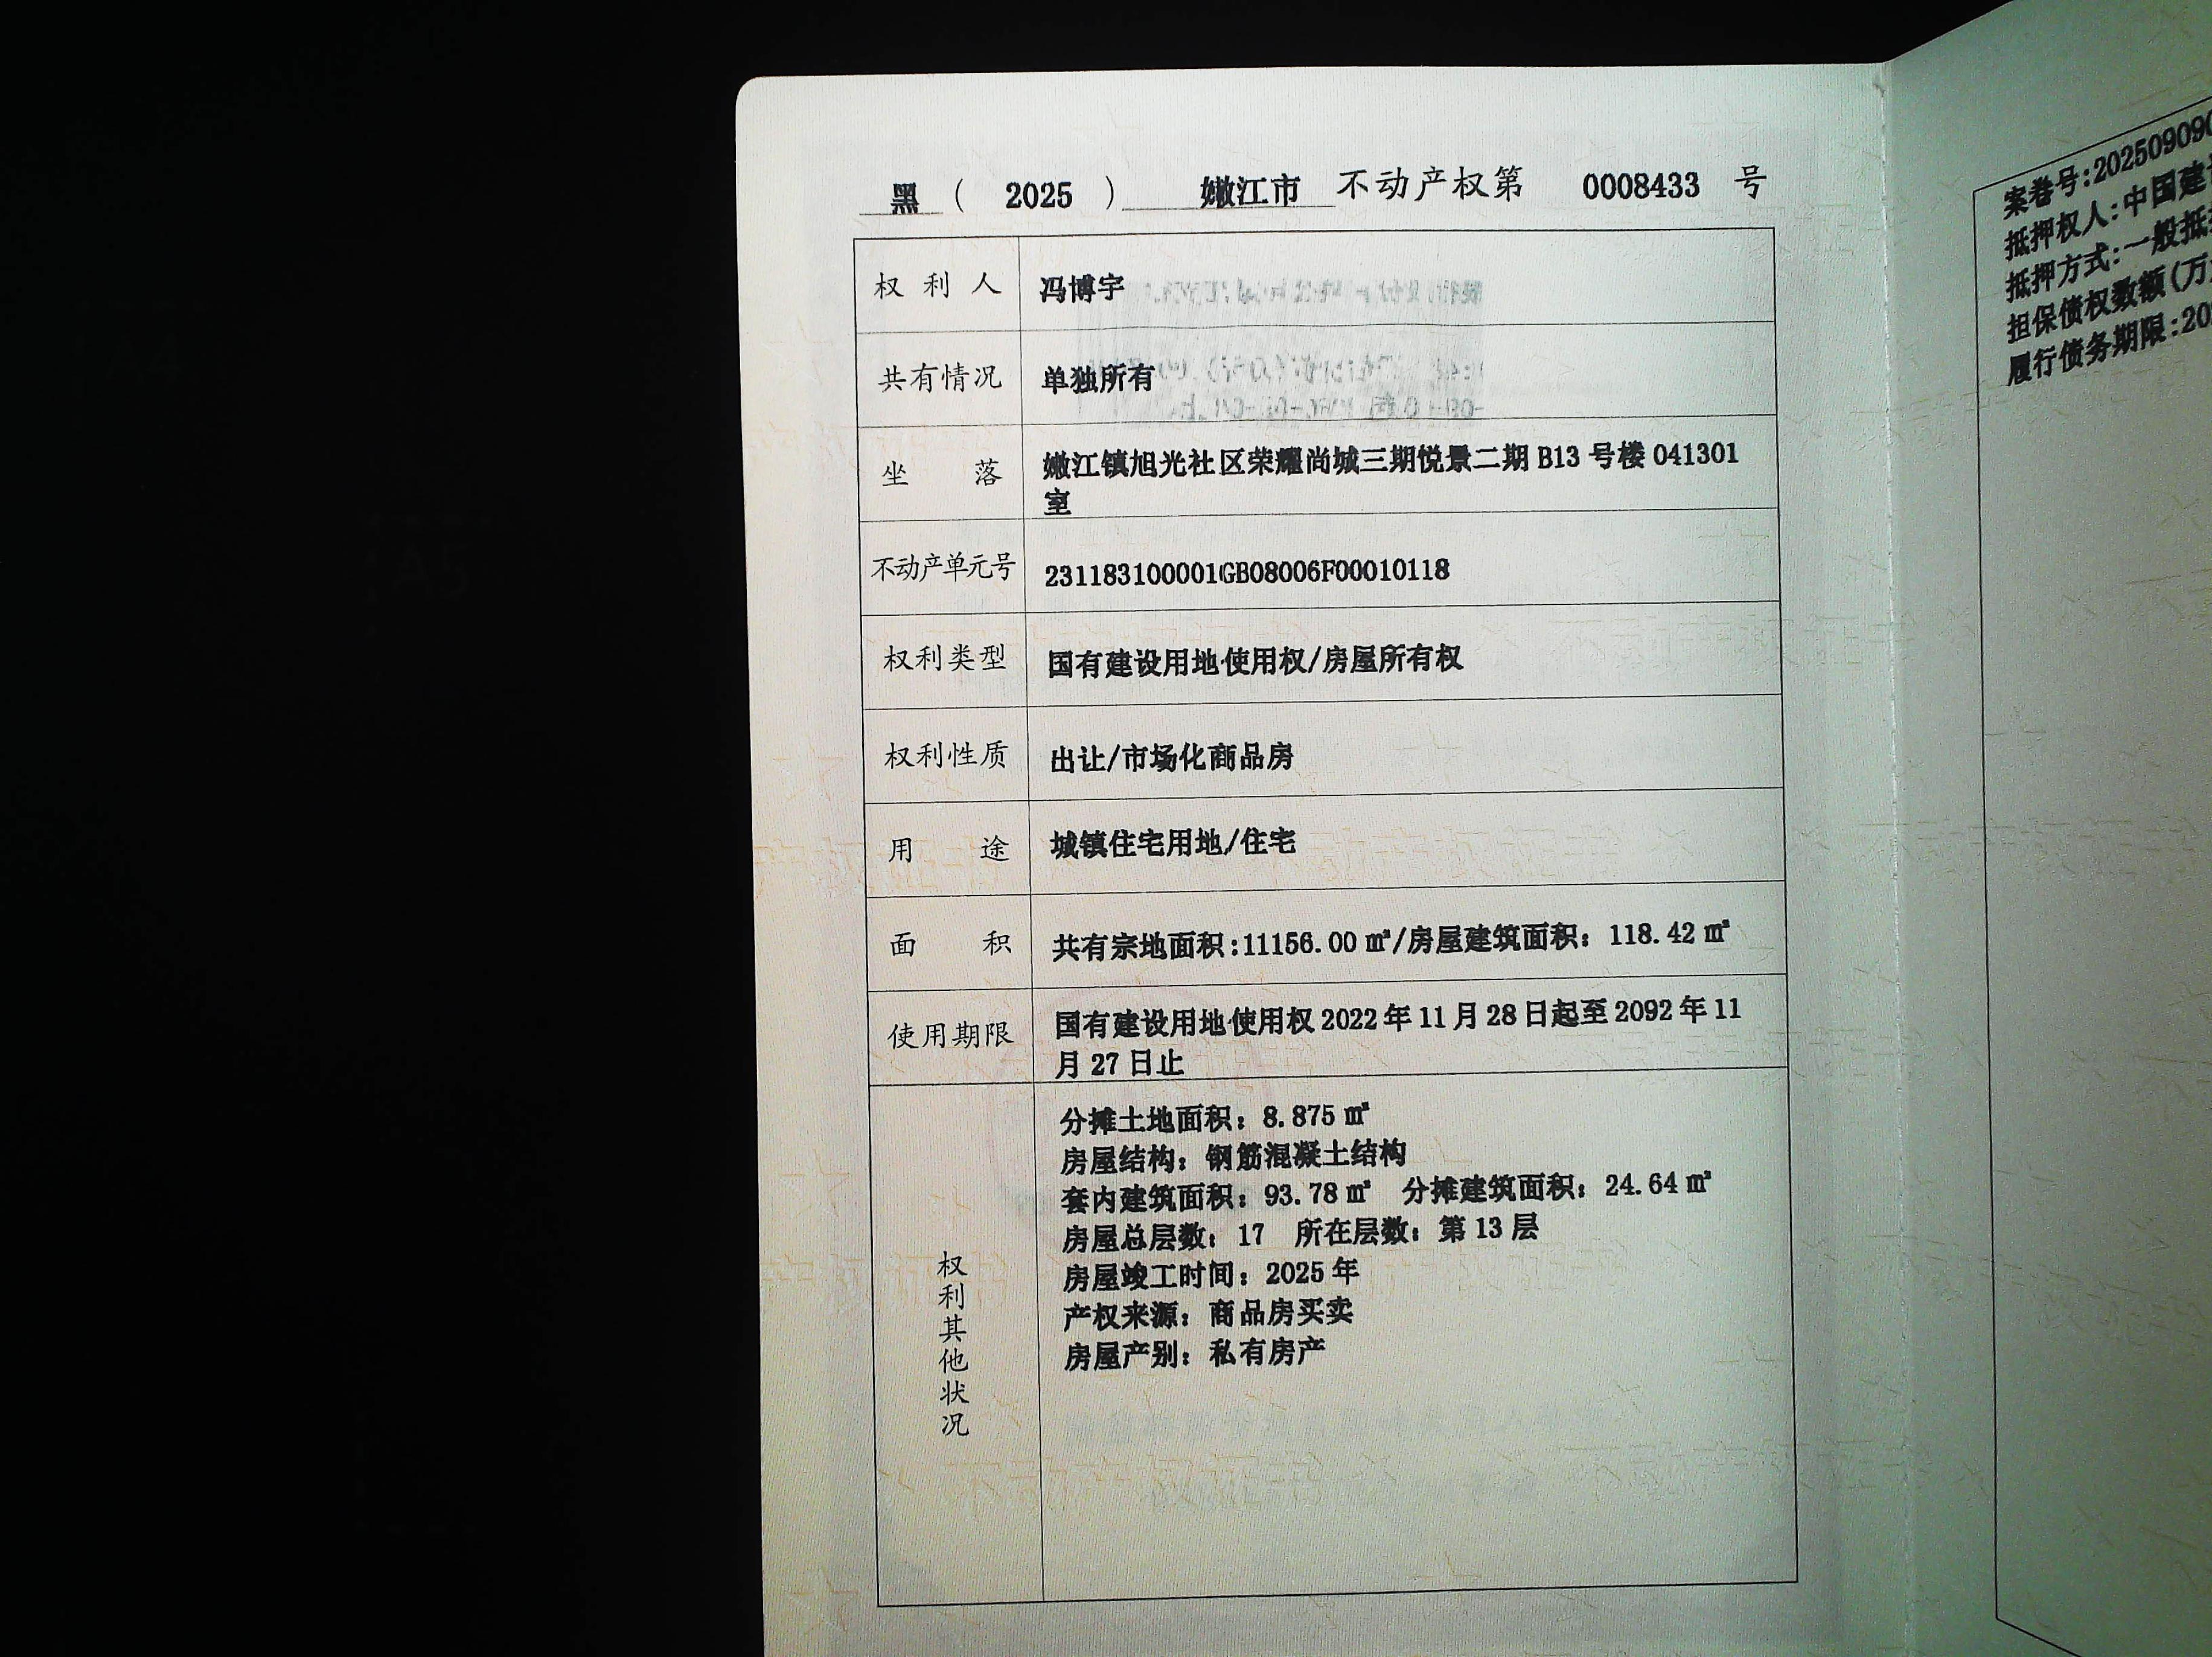 黑 ( 2025 ) 嫩江市 不动产权第 0008433 号
权利人 冯博宇
共有情况 单独所有
坐落 嫩江镇旭光社区荣耀尚城三期悦景二期 B13 号楼 041301
室
不动产单元号 231183100001GB08006F00010118
权利类型 国有建设用地使用权/房屋所有权
权利性质 出让/市场化商品房
用途 城镇住宅用地/住宅
面积 共有宗地面积:11156.00 ㎡/房屋建筑面积：118.42 ㎡
使用期限 国有建设用地使用权 2022 年 11 月 28 日起至 2092 年 11
月 27 日止
权利其他状况
分摊土地面积：8.875 ㎡
房屋结构：钢筋混凝土结构
套内建筑面积：93.78 ㎡ 分摊建筑面积：24.64 ㎡
房屋总层数：17 所在层数：第 13 层
房屋竣工时间：2025 年
产权来源：商品房买卖
房屋产别：私有房产
案卷号:20250909
抵押权人:中国建
抵押方式:一般抵
担保债权数额(万
履行债务期限:20